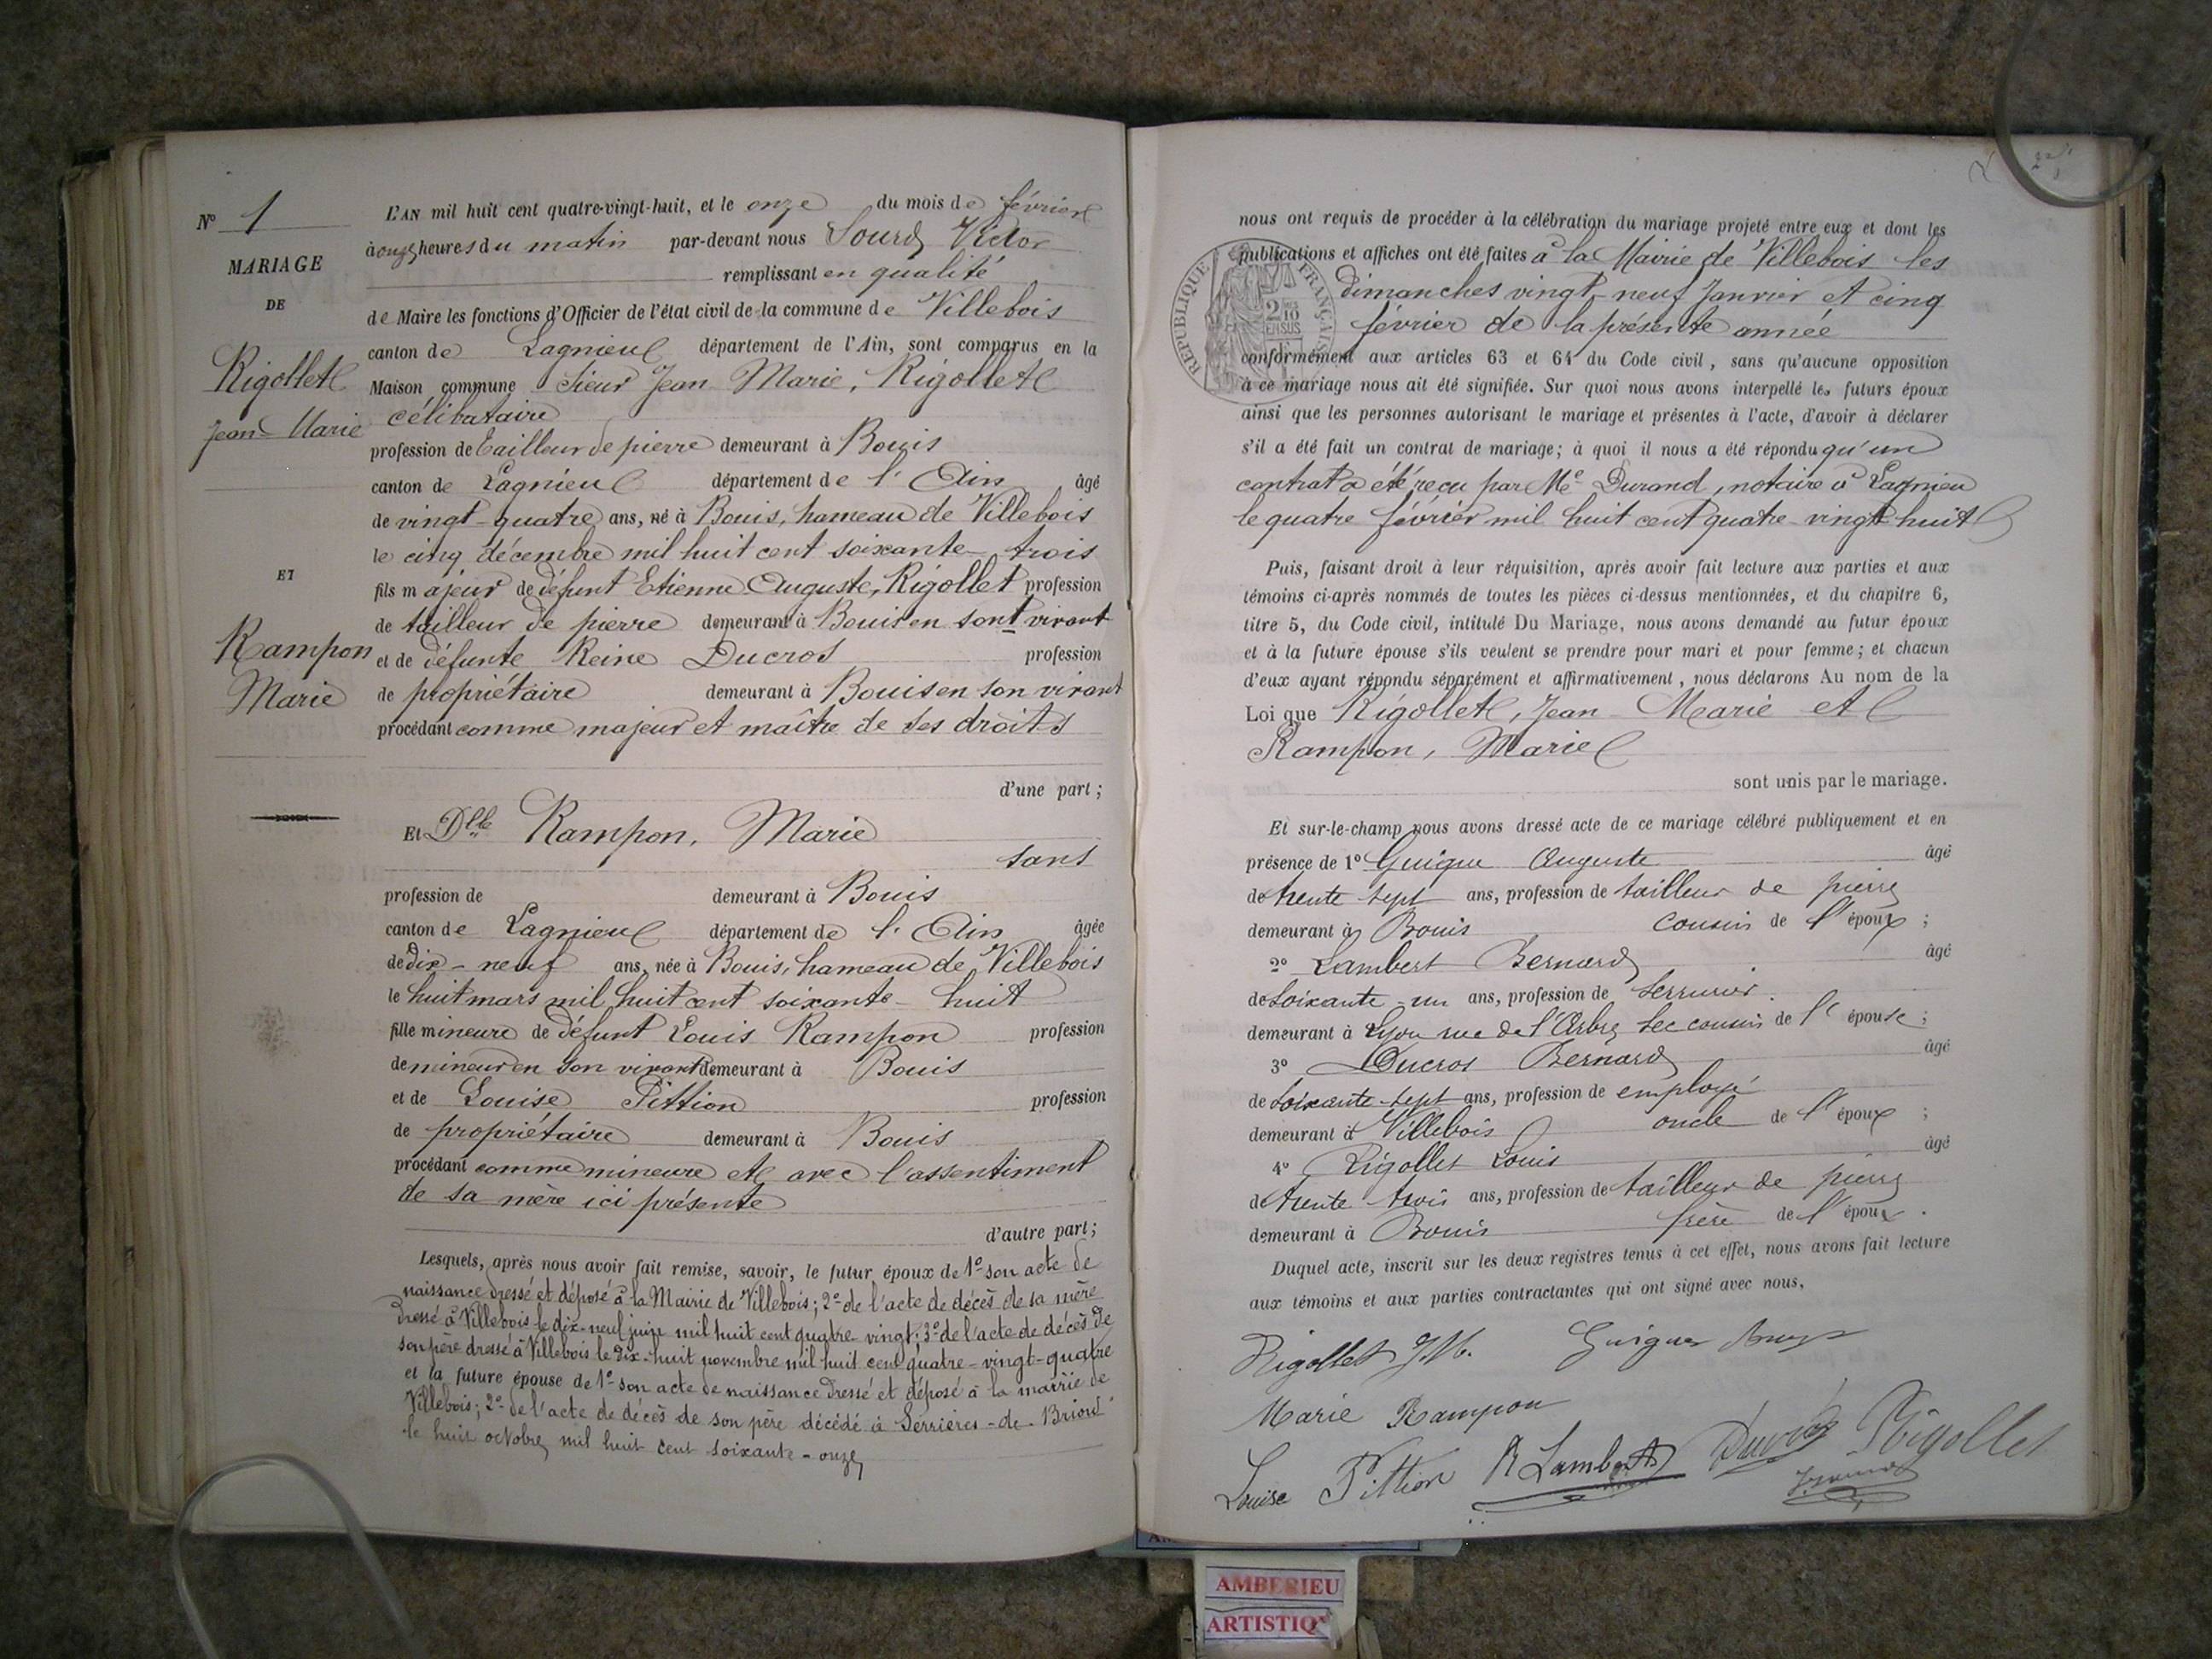 N° 1
MARIAGE
DE
Rigollet
Jean-Marie
ET
Rampon
Marie
L'AN mil huit cent quatre-vingt-huit, et le onze du mois de février
à onze heures du matin par-devant nous Sourd Victor
remplissant en qualité
de Maire les fonctions d'Officier de l'état civil de la commune de Villebois
canton de Lagnieu département de l'Ain, sont comparus en la
Maison commune Sieur Jean Marie, Rigollet
célibataire
profession de tailleur de pierre demeurant à Bouis
canton de Lagnieu département de l'Ain âgé
de vingt-quatre ans, né à Bouis, hameau de Villebois
le cinq décembre mil huit cent soixante-trois
fils majeur de défunt Etienne Auguste, Rigollet profession
de tailleur de pierre demeurant à Bouis en sont vivant
et de défunte Reine Ducros profession
de propriétaire demeurant à Bouis en son vivant
procédant comme majeur et maître de ses droits
d'une part ;
Et Dlle Rampon, Marie
sans
profession de demeurant à Bouis
canton de Lagnieu département de l'Ain âgée
de dix-neuf ans, née à Bouis, hameau de Villebois
le huit mars mil huit cent soixante-huit
fille mineure de défunt Louis Rampon profession
de mineur en son vivant demeurant à Bouis
et de Louise Pittion profession
de propriétaire demeurant à Bouis
procédant comme mineure et avec l'assentiment
de sa mère ici présente
d'autre part ;
Lesquels, après nous avoir fait remise, savoir, le futur époux de 1° son acte de
naissance dressé et déposé à la Mairie de Villebois ; 2° de l'acte de décès de sa mère
dressé à Villebois le dix-neuf juin mil huit cent quatre-vingt ; 3° de l'acte de décès de
son père dressé à Villebois le dix-huit novembre mil huit cent quatre-vingt-quatre
et la future épouse de 1° son acte de naissance dressé et déposé à la mairie de
Villebois ; 2° de l'acte de décès de son père décédé à Serrières-de-Briord
le huit octobre mil huit cent soixante-onze
nous ont requis de procéder à la célébration du mariage projeté entre eux et dont les
publications et affiches ont été faites à la Mairie de Villebois les
dimanches vingt-neuf Janvier et cinq
février de la présente année
REPUBLIQUE FRANÇAISE
2/10 EN SUS
conformément aux articles 63 et 64 du Code civil, sans qu'aucune opposition
à ce mariage nous ait été signifiée. Sur quoi nous avons interpellé les futurs époux
ainsi que les personnes autorisant le mariage et présentes à l'acte, d'avoir à déclarer
s'il a été fait un contrat de mariage ; à quoi il nous a été répondu qu'un
contrat a été reçu par Me Durand, notaire à Lagnieu
le quatre février mil huit cent quatre-vingt huit
Puis, faisant droit à leur réquisition, après avoir fait lecture aux parties et aux
témoins ci-après nommés de toutes les pièces ci-dessus mentionnées, et du chapitre 6,
titre 5, du Code civil, intitulé Du Mariage, nous avons demandé au futur époux
et à la future épouse s'ils veulent se prendre pour mari et pour femme ; et chacun
d'eux ayant répondu séparément et affirmativement, nous déclarons Au nom de la
Loi que Rigollet, Jean Marie et
Rampon, Marie
sont unis par le mariage.
Et sur-le-champ nous avons dressé acte de ce mariage célébré publiquement et en
présence de 1° Guigue Auguste âgé
de trente sept ans, profession de tailleur de pierre
demeurant à Bouis cousin de l'époux ;
2° Lambert Bernard âgé
de soixante-un ans, profession de serrurier
demeurant à Lyon rue de l'Arbre Sec cousin de l'épouse ;
3° Ducros Bernard âgé
de soixante-sept ans, profession de employé
demeurant à Villebois oncle de l'époux ;
4° Rigollet Louis âgé
de trente trois ans, profession de tailleur de pierre
demeurant à Bouis frère de l'époux.
Duquel acte, inscrit sur les deux registres tenus à cet effet, nous avons fait lecture
aux témoins et aux parties contractantes qui ont signé avec nous,
Rigollet J.M. Guigue
Marie Rampon
Louise Pittion Lambert Rigollet
AMBERIEU
ARTISTIQ